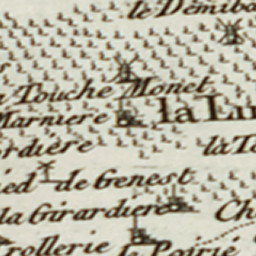 le Demiba
Touche Monet
Marniere
la Lu
rdiere
la Ta
ied de Genest
la Girardiere
Ch
rollerie
la Poirié